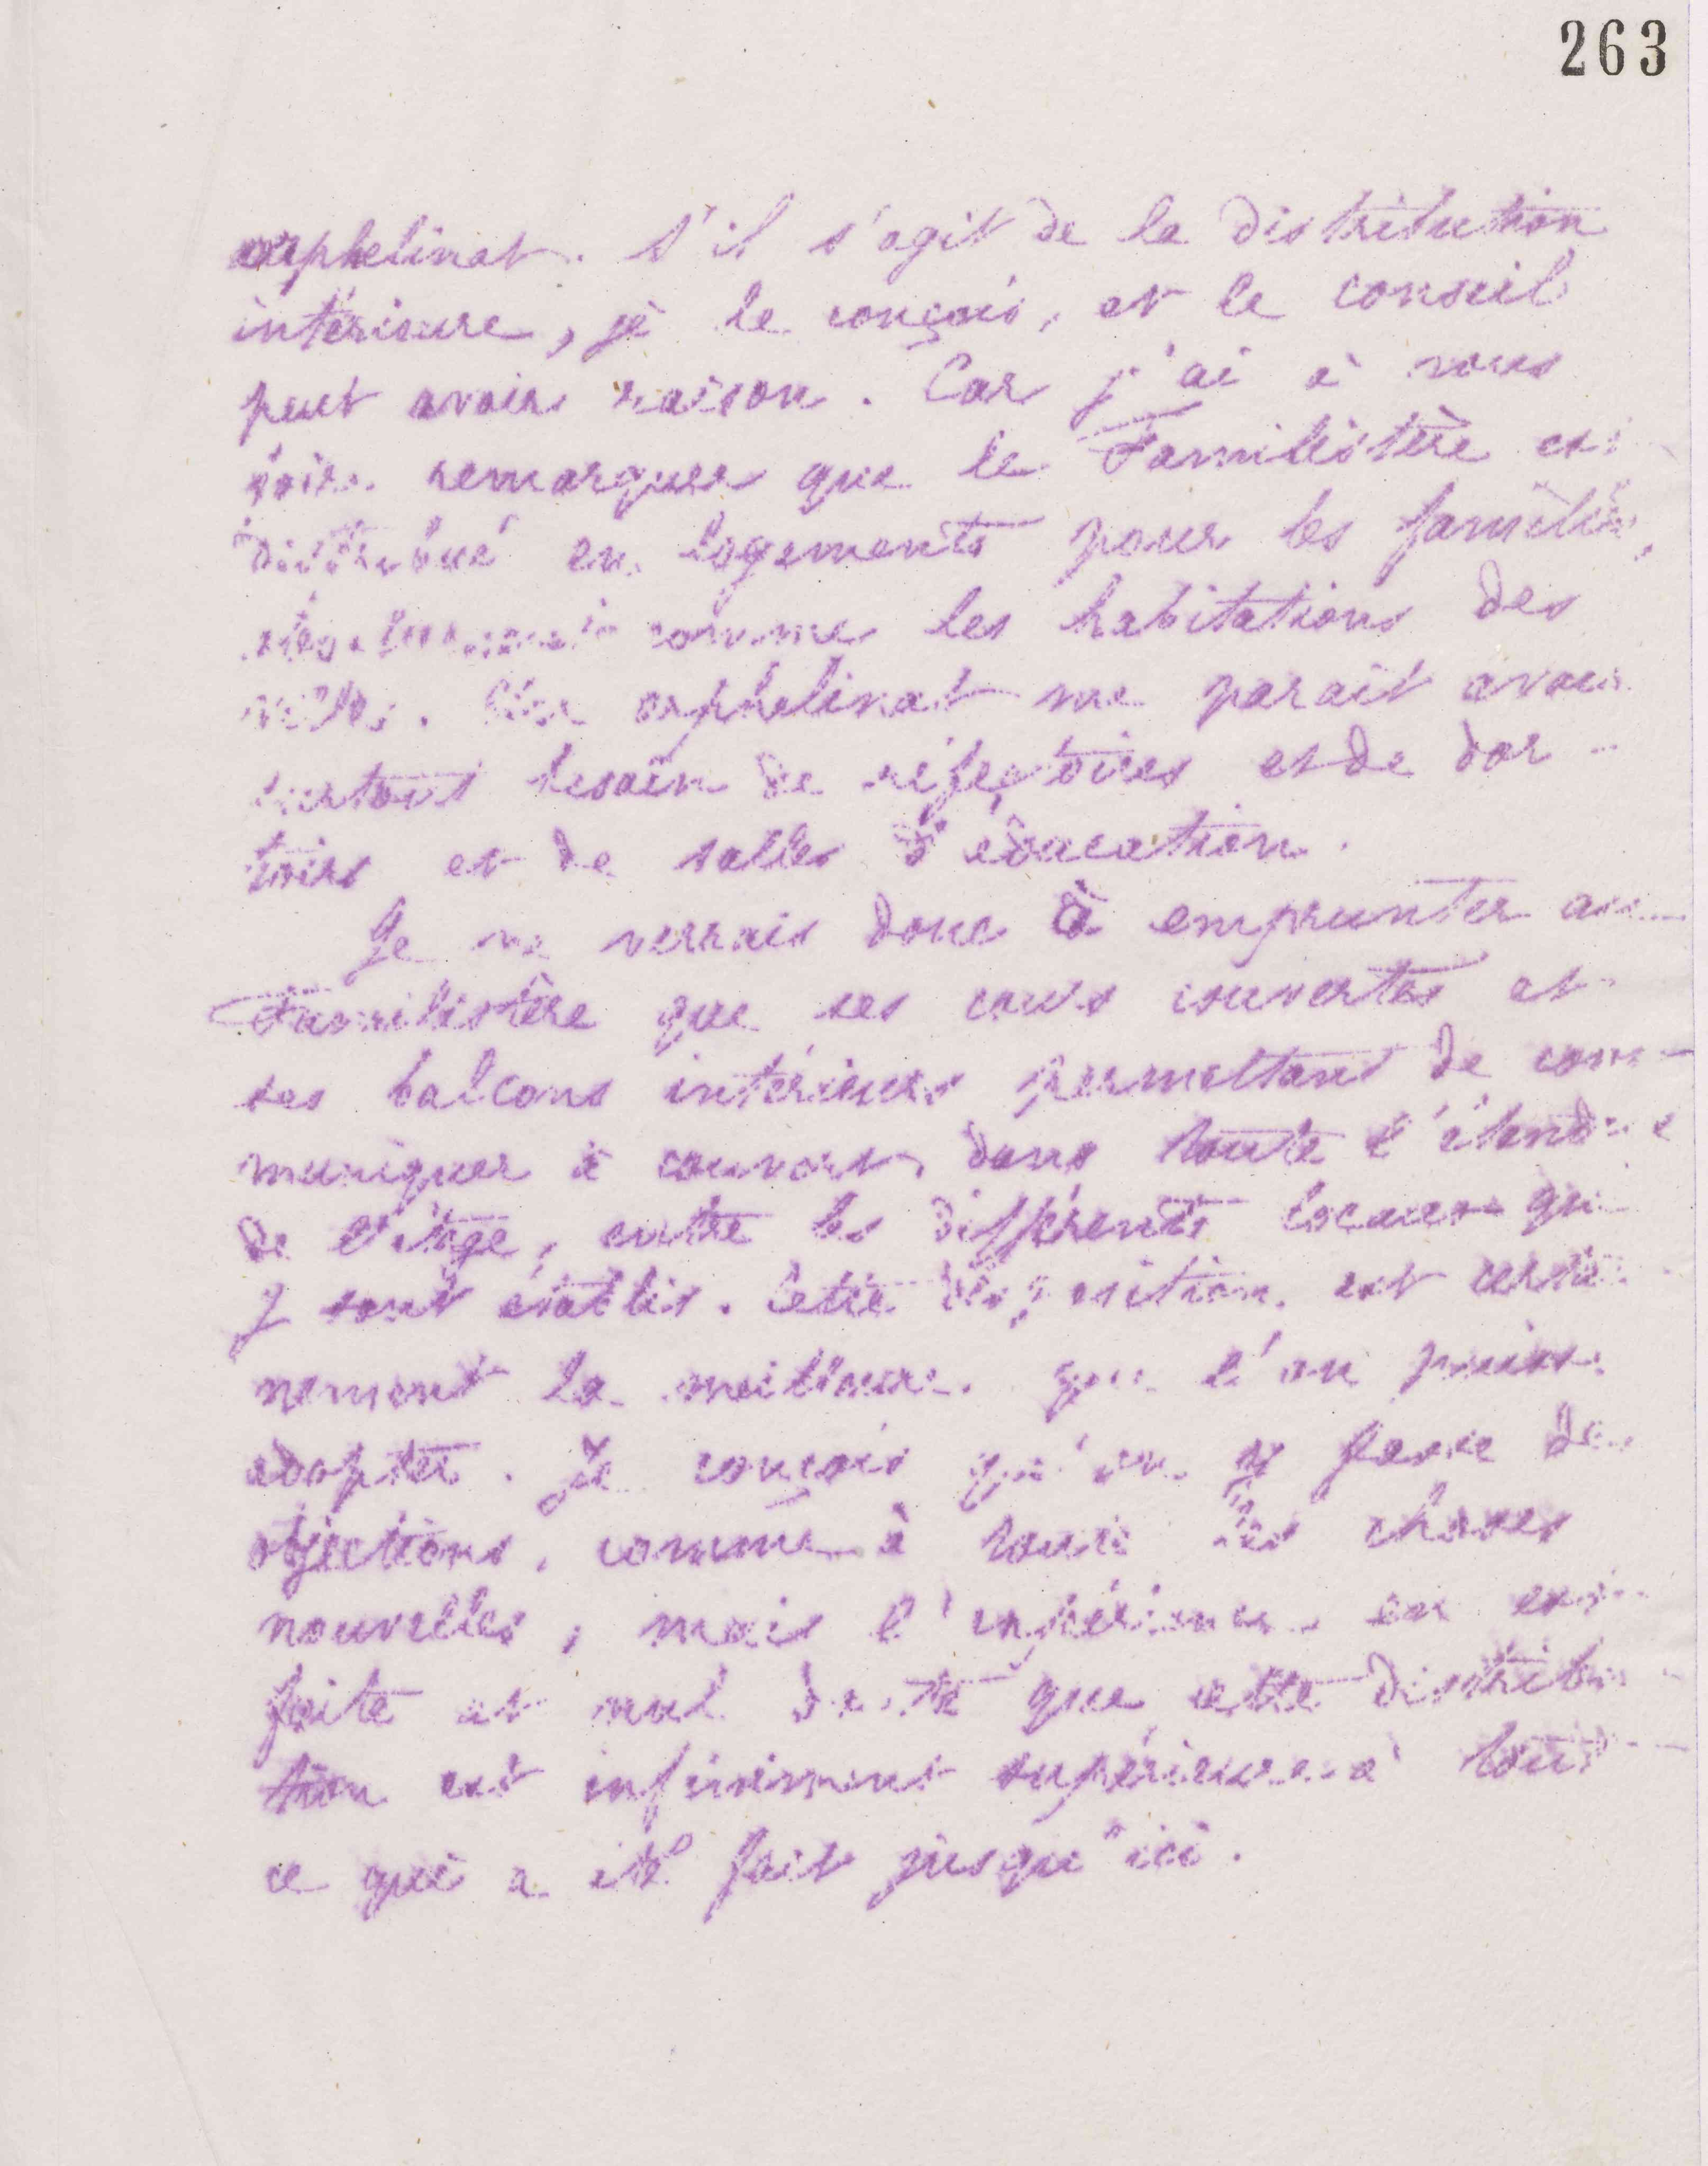 263
orphelinat. S'il s'agit de la distribution
intérieure, je le conçois, et le conseil
peut avoir raison. Car j'ai à vous
faire remarquer que le Familistère est
distribué en logements pour les familles,
comme les habitations des
villes. Un orphelinat me parait avoir
surtout besoin de réfectoires et de dor-
toirs et de salles d'éducation.
Je ne verrais donc à emprunter au
Familistère que ses cours couvertes et
ses balcons intérieurs permettant de com-
muniquer à couvert, dans toute l'étendue
de l'étage, entre les différents locaux qui
y sont établis. Cette disposition est certai-
nement la meilleure que l'on puisse
adopter. Je conçois qu'on y fasse des
objections, comme à toutes les choses
nouvelles, mais l'expérience en est
faite et nul doute que cette distribu-
tion est infiniment supérieure à tout
ce qui a été fait jusqu'ici.